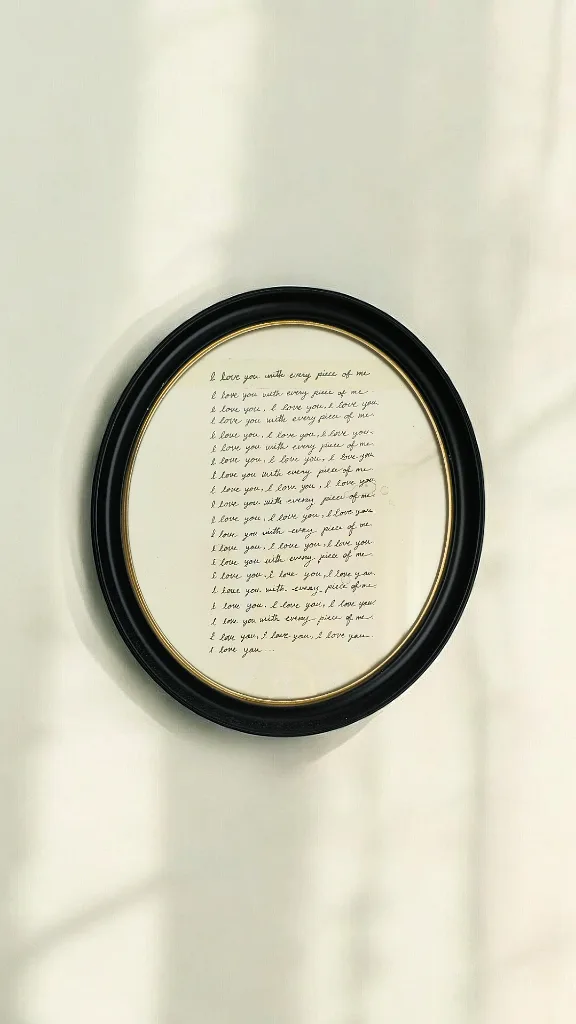 I love you with every piece of me
I love you with every piece of me
I love you, I love you, I love you
I love you with every piece of me
I love you, I love you, I love you.
I love you with every piece of me
I love you, I love you, I love you
I love you with every piece of me
I love you, I love you, I love you
I love you with every piece of me
I love you, I love you, I love you
I love you with every piece of me
I love you, I love you, I love you
I love you with every piece of me
I love you, I love you, I love you
I love you with every piece of me
I love you, I love you, I love you
I love you with every piece of me
I love you, I love you, I love you
I love you ...